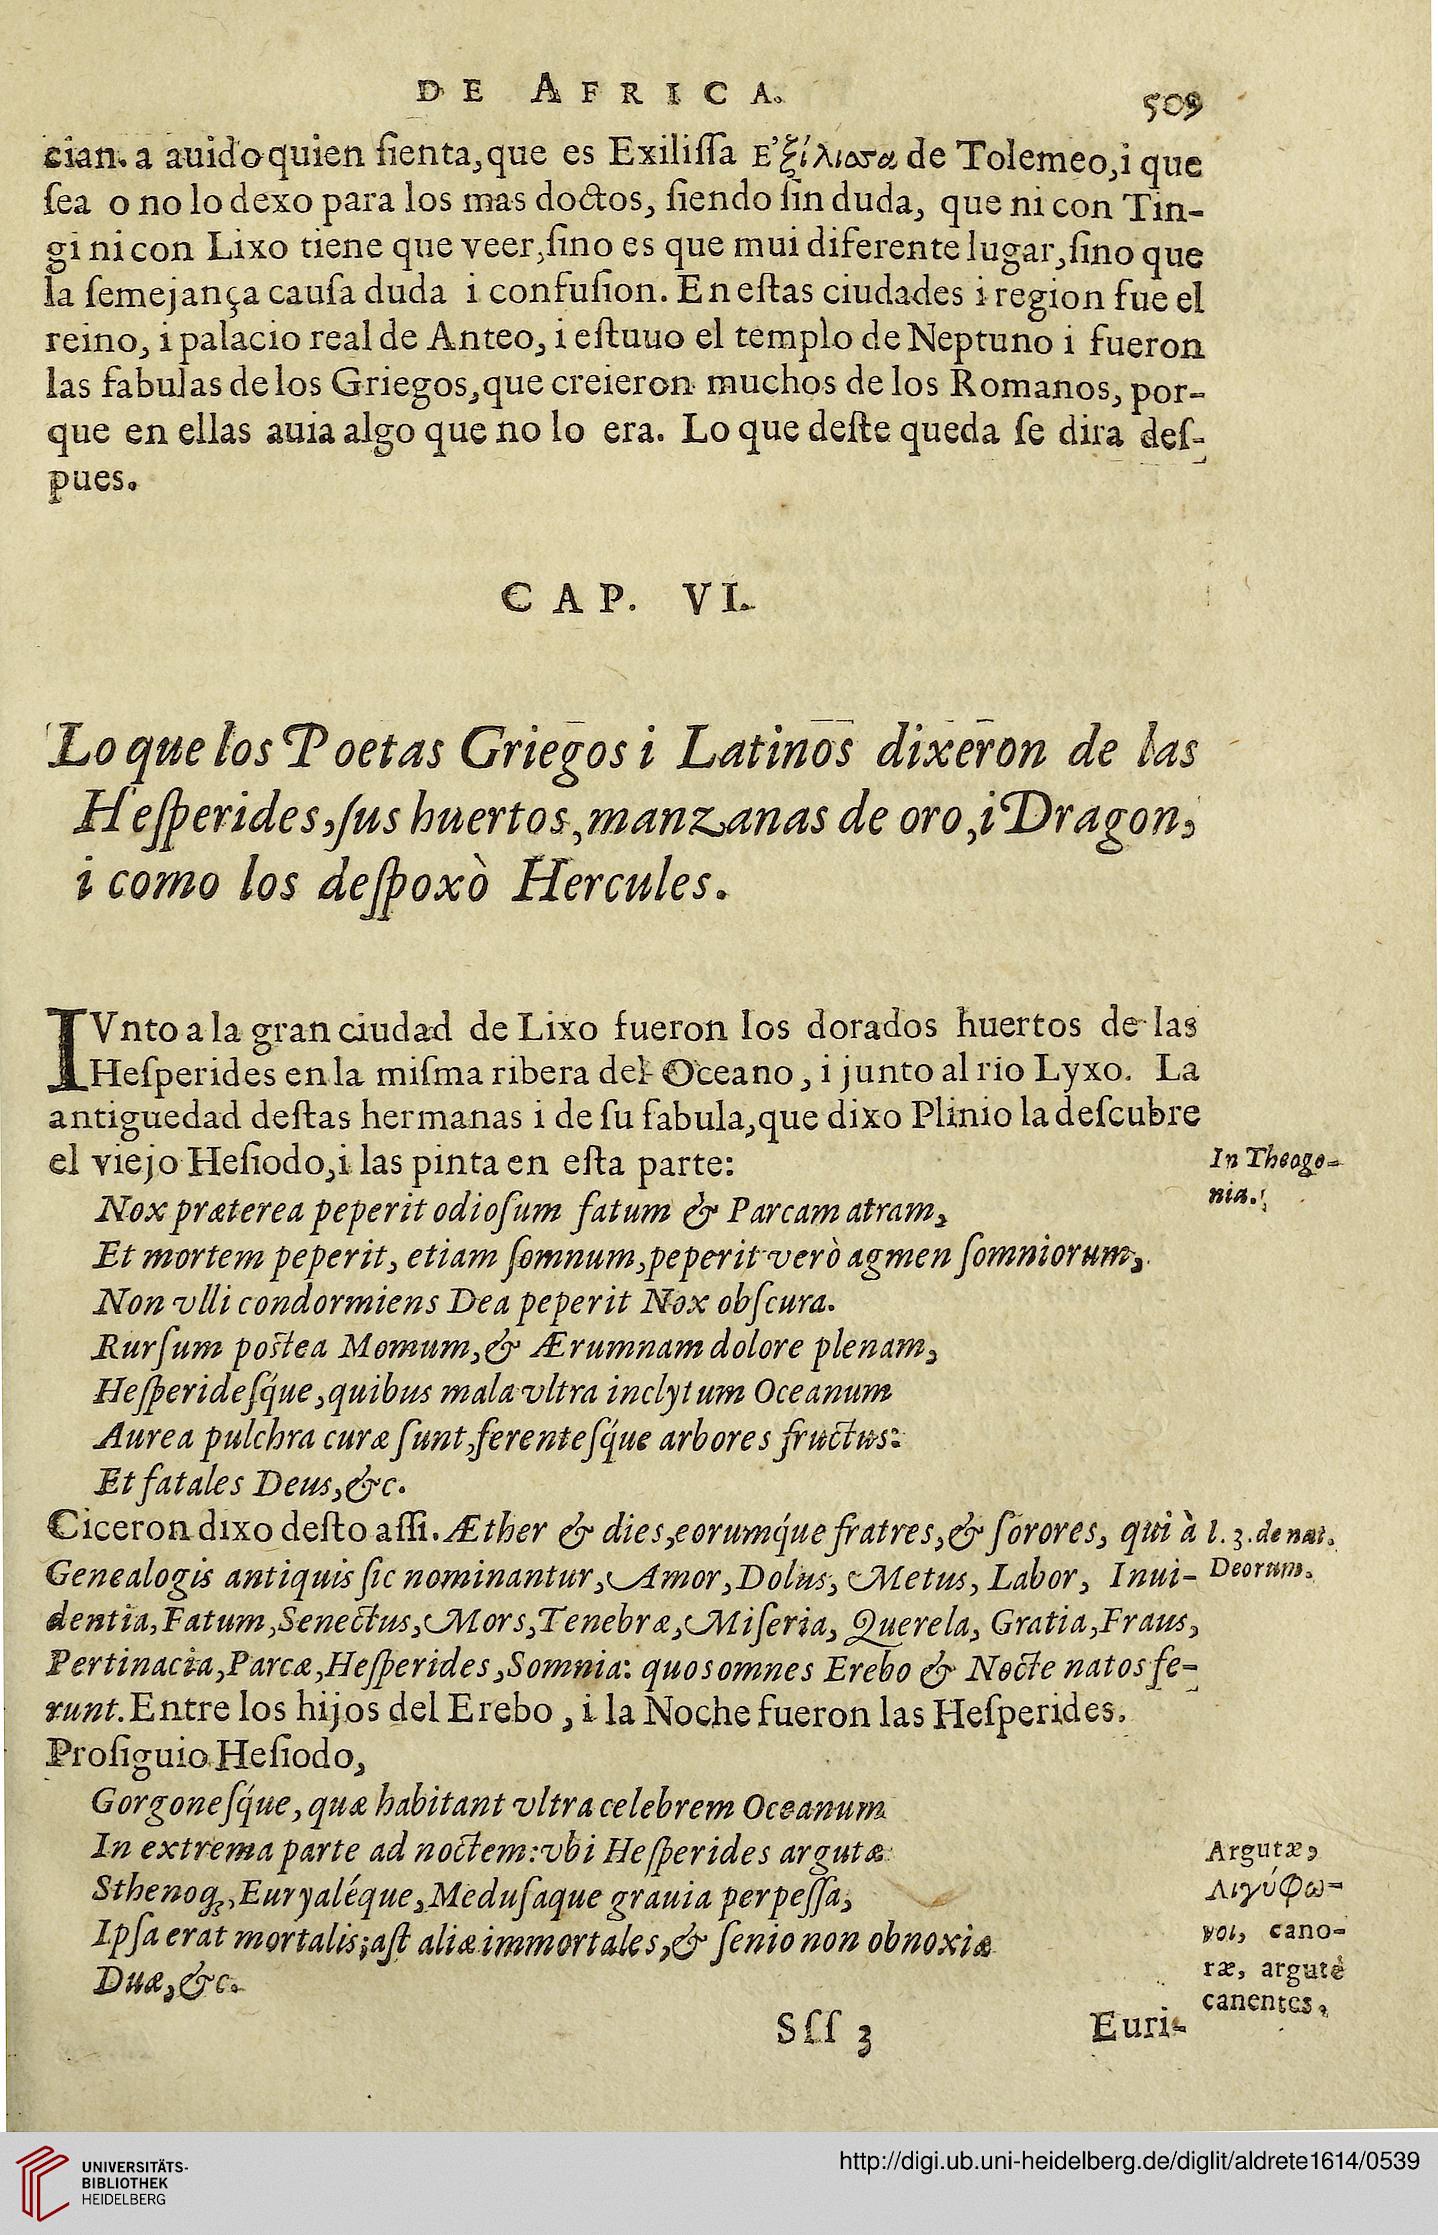 DE AFRICA. 509
cian. a auido quien ſienta, que es Exiliſſa Ε᾽ξίλισσα de Tolemeo, i que
ſea o no lo dexo para los mas doctos, ſiendo ſin duda, que ni con Tin-
gi ni con Lixo tiene que veer, ſino es que mui diferente lugar, ſino que
la ſemejança cauſa duda i confuſion. En eſtas ciudades i region fue el
reino, i palacio real de Anteo, i eſtuuo el templo de Neptuno i fueron
las fabulas de los Griegos, que creieron muchos de los Romanos, por-
que en ellas auia algo que no lo era. Lo que deſte queda ſe dira deſ-
pues.
CAP. VI.
Lo que los Poetas Griegos i Latinos dixeron de las
Heſperides, ſus huertos, manzanas de oro, i Dragon,
i como los deſpoxò Hercules.
IVnto a la gran ciudad de Lixo fueron los dorados huertos de las
Heſperides en la miſma ribera del Oceano, i junto al rio Lyxo. La
antiguedad deſtas hermanas i de ſu fabula, que dixo Plinio la deſcubre
el viejo Heſiodo, i las pinta en eſta parte:
In Theogo-
nia.
Nox præterea peperit odioſum fatum & Parcam atram,
Et mortem peperit, etiam ſomnum, peperit verò agmen ſomniorum,
Non vlli condormiens Dea peperit Nox obſcura.
Rurſum poſtea Momum, & Ærumnam dolore plenam,
Heſperideſq́ue, quibus mala vltra inclytum Oceanum
Aurea pulchra curæ ſunt, ferenteſq́ue arbores fructus:
Et fatales Deus, &c.
Ciceron dixo deſto aſſi. Æther & dies, eorumq́ue fratres, & ſorores, qui à
Genealogis antiquis ſic nominantur, Amor, Dolus, Metus, Labor, Inui-
dentia, Fatum, Senectus, Mors, Tenebræ, Miſeria, Querela, Gratia, Fraus,
Pertinacia, Parcæ, Heſperides, Somnia: quos omnes Erebo & Nocte natos fe-
runt. Entre los hijos del Erebo, i la Noche fueron las Heſperides.
l. 3. de nat.
Deorum.
Proſiguio Heſiodo,
Gorgoneſq́ue, quæ habitant vltra celebrem Oceanum
In extrema parte ad noctem: vbi Heſperides argutæ
Sthenoq;, Euryaléque, Meduſaque grauia perpeſſa,
Ipſa erat mortalis; aſt aliæ immortales, & ſenio non obnoxiæ
Duæ, &c.
Argutæ,
Λιγύφω-
νοι, cano-
ræ, argutè
canentes.
Sſſ 3 Euri-
UNIVERSITÄTS-
BIBLIOTHEK
HEIDELBERG
http://digi.ub.uni-heidelberg.de/diglit/aldrete1614/0539